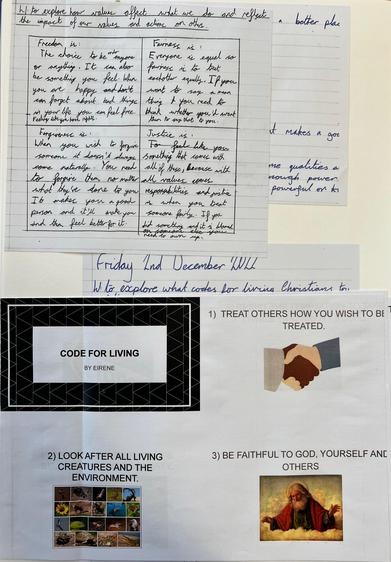 W to explore how values affect what we do and reflect
the impact of our values and actions on others.
Freedom is:
The choice to be anyone
or anything. It can also
be something you feel when
you are happy and don't
can forget about bad things
in your life you can feel free.
Fairness is:
Everyone is equal so
fairness is to treat
eachother equally. If you
want to say a mean
thing you need to
think whether you'd want
them to say that to you.
Forgiveness is:
When you wish to forgive
someone it doesn't always
come naturally. You need
to forgive them no matter
what they've done to you
It makes you a good
person and it'll make you
and them feel better for it.
Justice is:
something that comes with
all of these, because with
all values comes
responsibilities and justice
is when you treat
someone fairly. If you
did something and it is blamed
on someone else you
need to own up.
a better
makes a
qualities a
enough power
powerful or
Friday 2nd December 2022
W to explore what codes for living Christians
CODE FOR LIVING
BY EIRENE
1) TREAT OTHERS HOW YOU WISH TO BE
TREATED.
2) LOOK AFTER ALL LIVING
CREATURES AND THE
ENVIRONMENT.
3) BE FAITHFUL TO GOD, YOURSELF AND
OTHERS